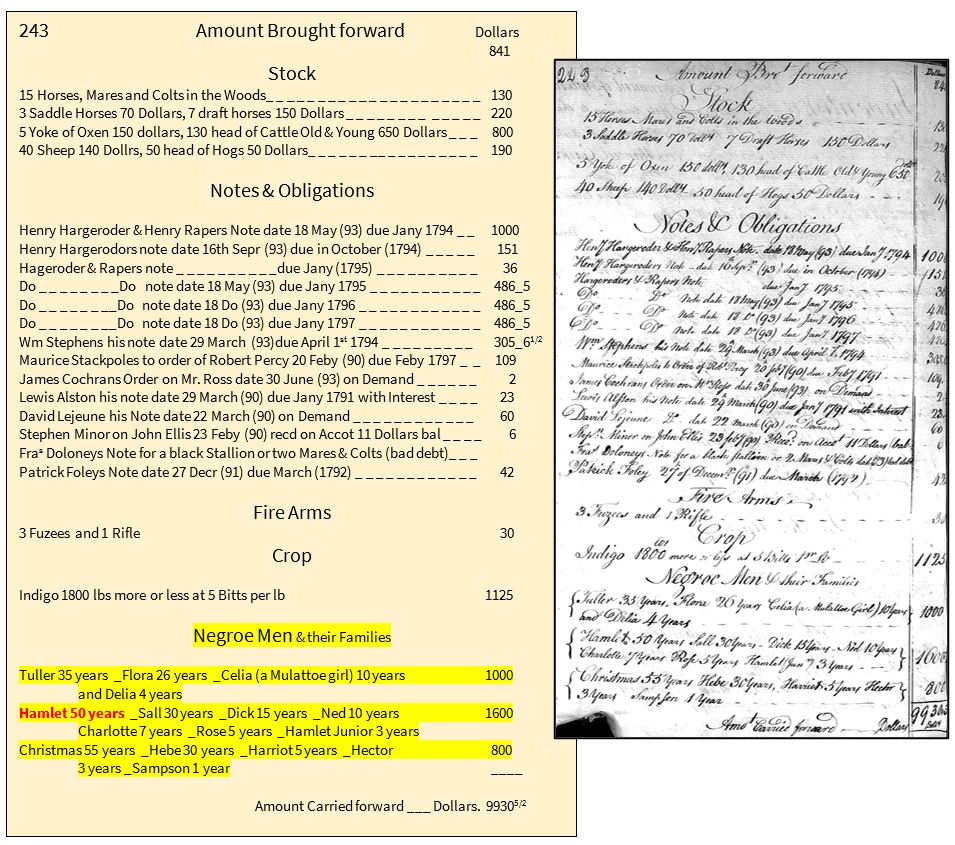 243 Amount Brought forward Dollars
841
Stock
15 Horses, Mares and Colts in the Woods_ _ _ _ _ _ _ _ _ _ _ _ _ _ _ _ _ _ _ _ _ 130
3 Saddle Horses 70 Dollars, 7 draft horses 150 Dollars_ _ _ _ _ _ _ _ _ _ _ _ _ 220
5 Yoke of Oxen 150 dollars, 130 head of Cattle Old & Young 650 Dollars_ _ _ 800
40 Sheep 140 Dollrs, 50 head of Hogs 50 Dollars_ _ _ _ _ _ _ _ _ _ _ _ _ _ _ _ _ 190
Notes & Obligations
Henry Hargeroder & Henry Rapers Note date 18 May (93) due Jany 1794 _ _ 1000
Henry Hargerodors note date 16th Sepr (93) due in October (1794) _ _ _ _ _ 151
Hageroder & Rapers note _ _ _ _ _ _ _ _ _ _due Jany (1795) _ _ _ _ _ _ _ _ _ _ 36
Do _ _ _ _ _ _ _ _Do note date 18 May (93) due Jany 1795 _ _ _ _ _ _ _ _ _ _ _ 486_5
Do _ _ _ _ _ _ _ _Do note date 18 Do (93) due Jany 1796 _ _ _ _ _ _ _ _ _ _ _ _ 486_5
Do _ _ _ _ _ _ _ _Do note date 18 Do (93) due Jany 1797 _ _ _ _ _ _ _ _ _ _ _ _ 486_5
Wm Stephens his note date 29 March (93)due April 1st 1794 _ _ _ _ _ _ _ _ _ 305_6 1/2
Maurice Stackpoles to order of Robert Percy 20 Feby (90) due Feby 1797 _ _ 109
James Cochrans Order on Mr. Ross date 30 June (93) on Demand _ _ _ _ _ _ 2
Lewis Alston his note date 29 March (90) due Jany 1791 with Interest _ _ _ _ 23
David Lejeune his Note date 22 March (90) on Demand _ _ _ _ _ _ _ _ _ _ _ 60
Stephen Minor on John Ellis 23 Feby (90) recd on Accot 11 Dollars bal _ _ _ _ 6
Fras Doloneys Note for a black Stallion or two Mares & Colts (bad debt)_ _ _
Patrick Foleys Note date 27 Decr (91) due March (1792) _ _ _ _ _ _ _ _ _ _ _ _ 42
Fire Arms
3 Fuzees and 1 Rifle 30
Crop
Indigo 1800 lbs more or less at 5 Bitts per lb 1125
Negroe Men & their Families
Tuller 35 years _Flora 26 years _Celia (a Mulattoe girl) 10 years 1000
and Delia 4 years
Hamlet 50 years _Sall 30 years _Dick 15 years _Ned 10 years 1600
Charlotte 7 years _Rose 5 years _Hamlet Junior 3 years
Christmas 55 years _Hebe 30 years _Harriot 5 years _Hector 800
3 years _Sampson 1 year ____
Amount Carried forward ___ Dollars. 9930 5/2
243 Amount Brot forward Dollars
Stock
15 Horses Mares and Colts in the Woods
3 Saddle Horses 70 Dollrs 7 Draft Horses 150 Dollars
5 Yoke of Oxen 150 dollrs, 130 head of Cattle Old & Young 650
40 Sheep 140 Dollrs 50 head of Hogs 50 Dollars
Notes & Obligations
Heny Hargeroder & Heny Rapers Note date 18 May (93) due Jany 1794
Heny Hargeroders Note date 16 Sepr (93) due in October (1794)
Hargeroders & Rapers Note due Jany 1795
Do Do Note date 18 May (93) due Jany 1795
Do Do Note date 18 Do (93) due Jany 1796
Do Do Note date 18 Do (93) due Jany 1797
Wm Stephens his Note date 29 March (93) due April 1, 1794
Maurice Stackpoles to Order of Robt Percy 20 feby (90) due Feby 1791
James Cochrans Order on Mr Ross date 30 June (93) on Demand
Lewis Alston his Note date 29 March (90) due Jany 1791 with Interest
David Lejeune Do date 22 March (90) on Demand
Stepn Minor on John Ellis 23 feby (90) Recd on Acct 11 Dollars bal
Fras Doloneys Note for a black Stallion or 2 Mares & Colts bad debt
Patrick Foley 27 of Decemr (91) due March (1792)
Fire Arms
3 Fuzees and 1 Rifle
Crop
Indigo 1800 lbs more or less at 5 Bitts pr lb 1125
Negroe Men & their Families
Tuller 35 Years, Flora 26 Years Celia (a Mulattoe Girl) 10 Years 1000
and Delia 4 Years
Hamlet 50 Years Sall 30 Years Dick 15 Years Ned 10 Years
Charlotte 7 Years Rose 5 Years Hamlet Junr 3 years 1600
Christmas 55 Years Hebe 30 Years, Harriot 5 Years Hector 800
3 Years Sampson 1 Year
Amot Carried forward Dollars 9930